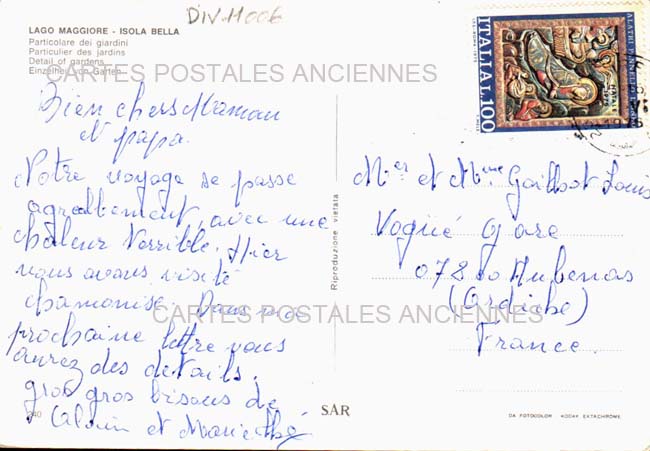 DIV-11006
LAGO MAGGIORE - ISOLA BELLA
Particolare dei giardini
Particulier des jardins
Detail of gardens
Einzelheit von Garten
CARTES POSTALES ANCIENNES
Bien chers Maman
et papa.
Notre voyage se passe
agréablement, avec une
chaleur terrible. Hier
nous avons visité
chamonix. Dans ma
prochaine lettre vous
aurez des détails.
gros gros bisous de
Alain et Marie
240
Riproduzione vietata
SAR
ITALIA L.100
NATALE
Mer et Mme Gaillot Louis
Vogüé gare
07200 Aubenas
(Ardèche)
France.
CARTES POSTALES ANCIENNES
DA FOTOCOLOR KODAK EXTACHROME